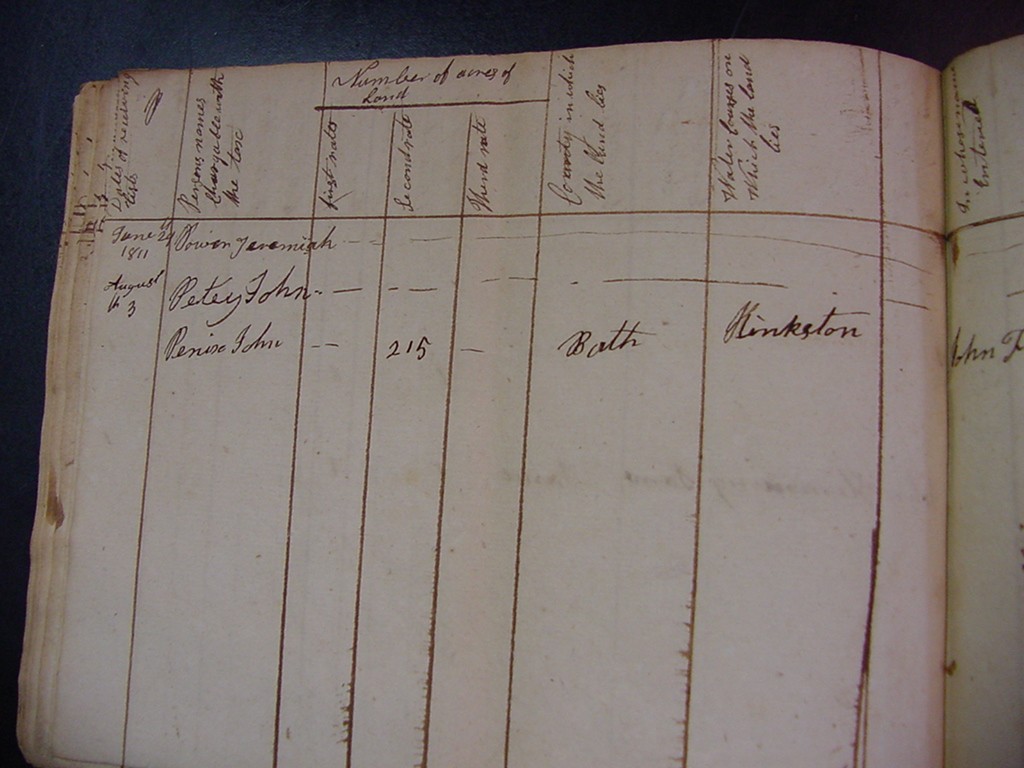 P
Dates of receiving
lists
Persons names
Chargeable with
the tax
Number of acres of
Land
first rate
Second rate
Third rate
County in which
the land lies
Water Courses on
Which the land
lies
In whose name
Entered
June 29
1811
Power Jeremiah — — —
August
th 3
Petey John - — — — — - —
Penix John — 215 — Bath Hinkston
John